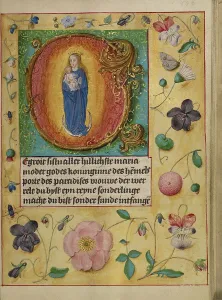 Gegroit sistu aller hillichste maria
moder godes koninginne des hemels
porte des paradises vrouwe der wer
relt du byst eyn reyne sonderlinge
macht du bist sonder sunde intfange